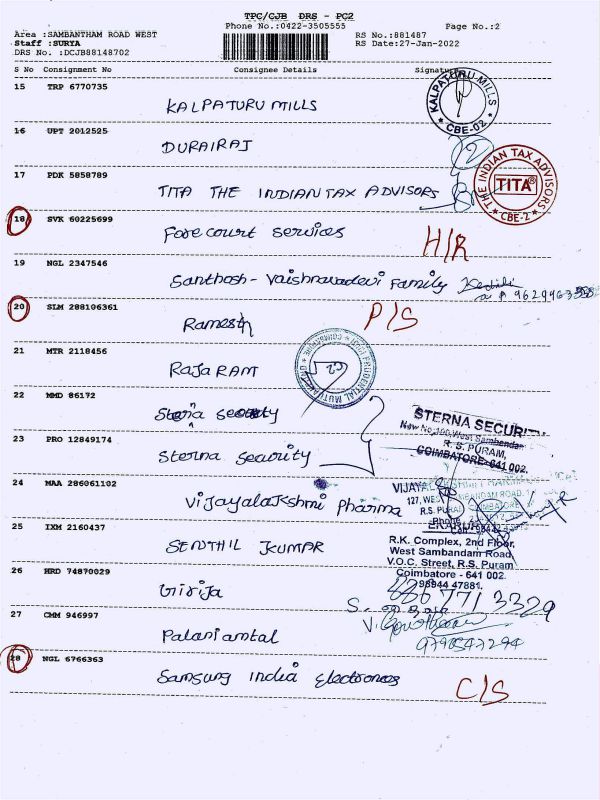 TPC/CJB DRS - PC2
Phone No.:0422-3505555
Page No.:2
Area :SAMBANTHAM ROAD WEST
RS No.:881487
Staff :SURYA
RS Date:27-Jan-2022
DRS No. :DCJB88148702
S No Consignment No Consignee Details Signature
15 TRP 6770735 KALPATURU MILLS
KALPATURU MILLS
CBE-02
16 UPT 2012525 DURAIRAJ
17 PDK 5858789 TITA THE INDIAN TAX ADVISORS
THE INDIAN TAX ADVISORS
TITA
CBE-2
18 SVK 60225699 Fore court services H/R
19 NGL 2347546 Santhosh - Vaishnavadevi Family
20 SLM 288106361 Ramesh P/S
21 MTR 2118456 RAJARAM
PRUDENTIAL MUTUAL
22 MMD 86172 Sterna security
STERNA SECURITY
New No,100,West Sambandam
R. S. PURAM,
COIMBATORE-641 002.
23 PRO 12849174 Sterna security
24 MAA 286061102 Vijayalakshmi Pharma
25 IXM 2160437 SENTHIL KUMAR
R.K. Complex, 2nd Floor,
West Sambandam Road,
V.O.C. Street, R.S. Puram
Coimbatore - 641 002.
98944 47881.
26 HRD 74870029 Girija
27 CHM 946997 Palaniammal
9790547294
28 NGL 6766363 Samsung India Electronics C/S